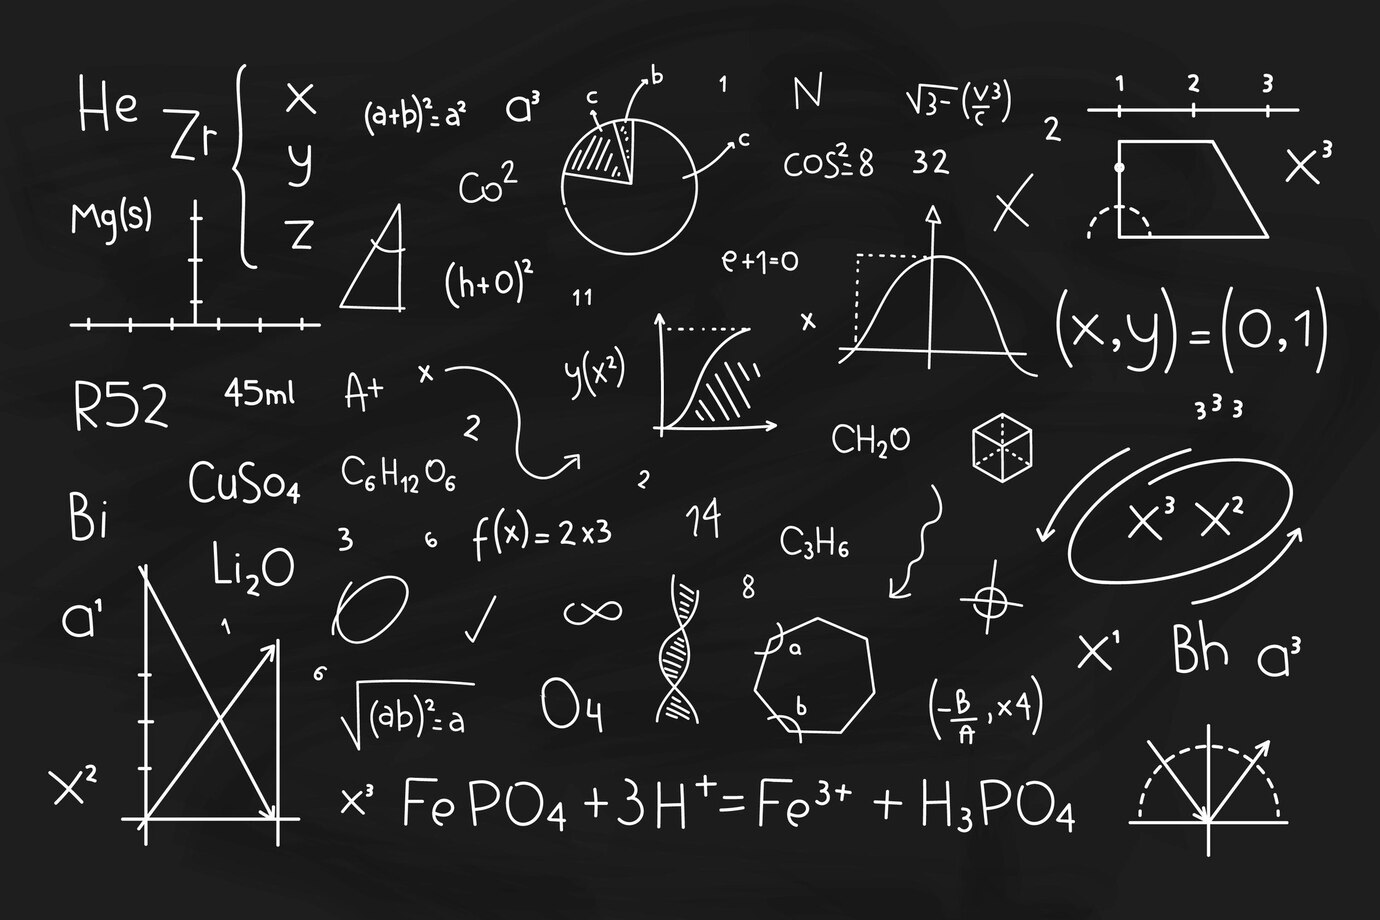 He
Zr
x
y
z
(a+b)²=a²
a³
c
b
c
1
N
√3-(v3/c)
2
1 2 3
x³
Mg(s)
Co²
cos²=8
32
x
(h+0)²
11
e+1=0
x
(x,y)=(0,1)
R52
45ml
A+
x
2
y(x²)
3³3
CH₂O
CuSo₄
C₆H₁₂O₆
2
x³ x²
Bi
3
6
f(x)=2x3
14
C₃H₆
Li₂O
a¹
1
∞
8
a
b
x¹
Bh
a³
6
√(ab)²=a
O4
(-B/A,x4)
x²
x³
FePO₄+3H⁺=Fe³⁺+H₃PO₄